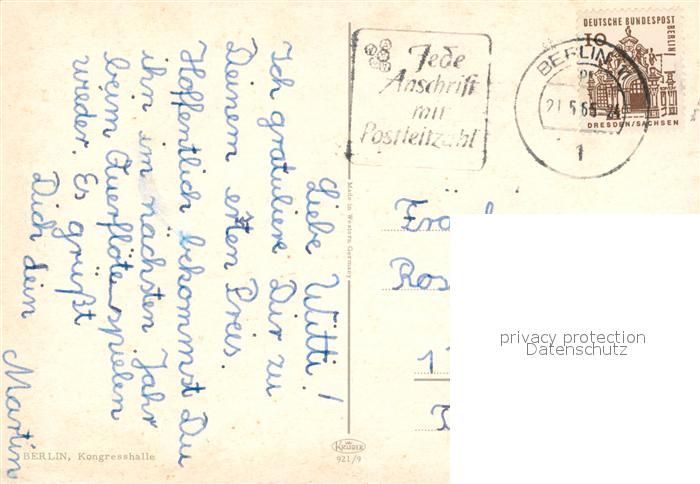 Liebe Witti!
Ich gratuliere Dir zu
Deinem ersten Preis.
Hoffentlich bekommst Du
ihn im nächsten Jahr
beim Querflötenspielen
wieder. Es grüßt
Dich dein
Martin
BERLIN, Kongresshalle
Made in Western Germany
KRÜGER
921/9
Jede
Anschrift
mit
Postleitzahl
BERLIN
21.5.65-21
1
DEUTSCHE BUNDESPOST
BERLIN
10
DRESDEN/SACHSEN
privacy protection
Datenschutz